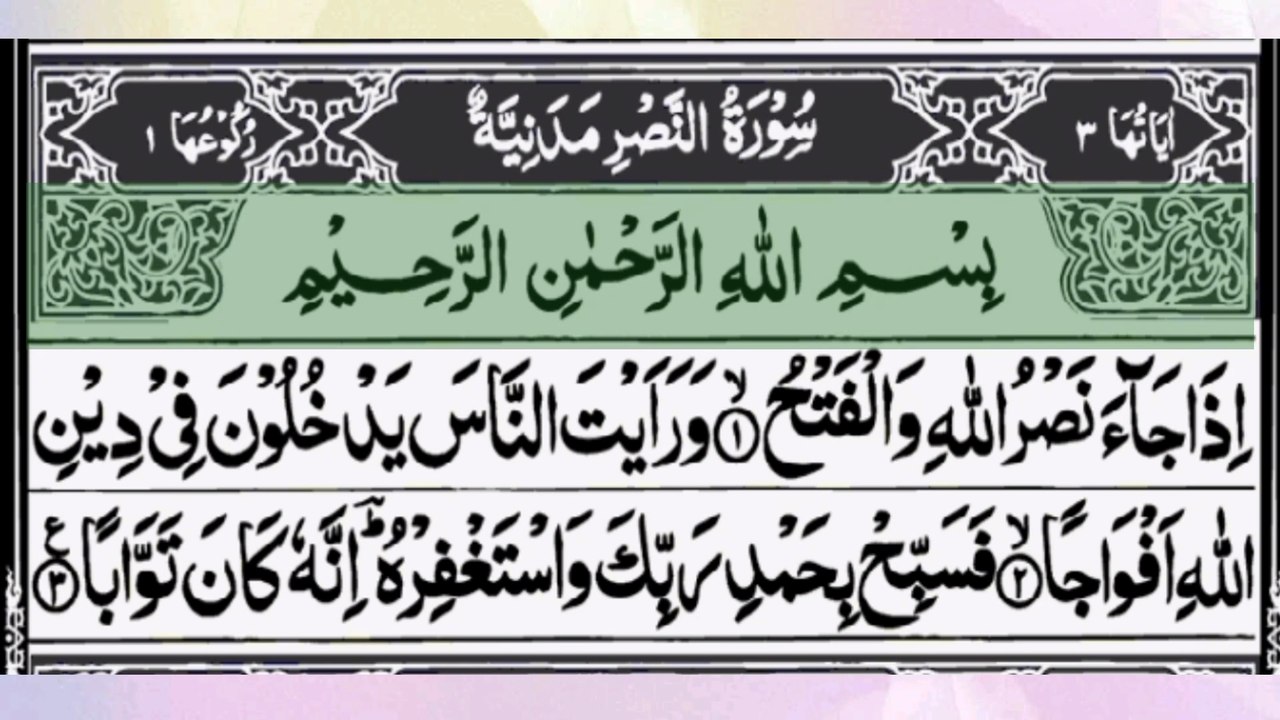 اٰيَاتُهَا ٣ سُوْرَةُ النَّصْرِ مَدَنِيَّةٌ رُكُوْعُهَا ١
بِسْمِ اللّٰهِ الرَّحْمٰنِ الرَّحِيْمِ
اِذَا جَآءَ نَصْرُ اللّٰهِ وَالْفَتْحُ ۙ﴿١﴾ وَرَاَيْتَ النَّاسَ يَدْخُلُوْنَ فِيْ دِيْنِ
اللّٰهِ اَفْوَاجًا ۙ﴿٢﴾ فَسَبِّحْ بِحَمْدِ رَبِّكَ وَاسْتَغْفِرْهُ ؕ اِنَّهٗ كَانَ تَوَّابًا ﴿٣﴾ ع